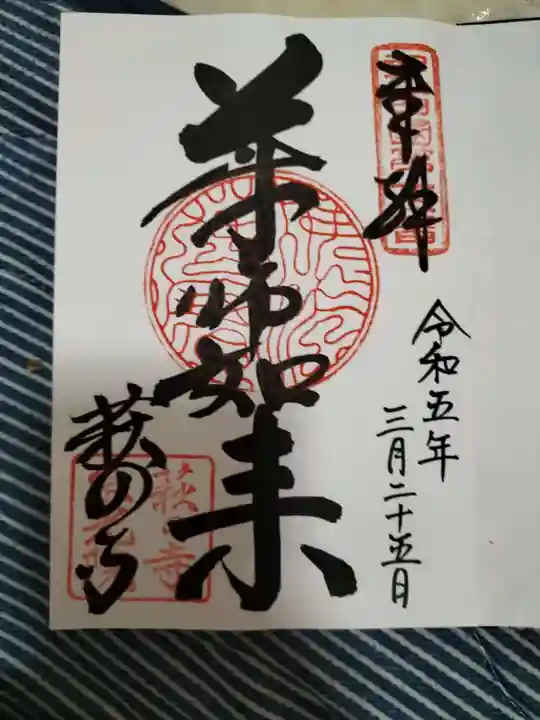 奉拝
令和五年
三月二十五日
薬師如来
萩の寺
萩の寺